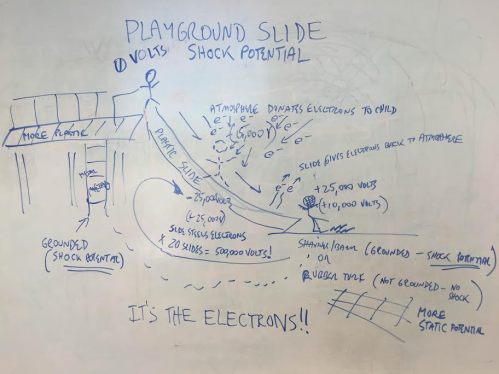 PLAYGROUND SLIDE
VOLTS SHOCK POTENTIAL
ATMOSPHERE DONATES ELECTRONS TO CHILD
e⁻ e⁻ e⁻ e⁻
(+5,000V) e⁻ e⁻
MORE PLASTIC
PLASTIC SLIDE
SLIDE GIVES ELECTRONS BACK TO ATMOSPHERE
e⁻ e⁻
METAL
+25,000 VOLTS
(+10,000 VOLTS)
-25,000 VOLTS
(+25,000V)
SLIDE STEELS ELECTRONS
× 20 SLIDES = 500,000 VOLTS!
GROUNDED
(SHOCK POTENTIAL)
(GROUNDED - SHOCK POTENTIAL)
OR
RUBBER TURF (NOT GROUNDED - NO
SHOCK)
MORE
STATIC POTENTIAL
IT'S THE ELECTRONS!!